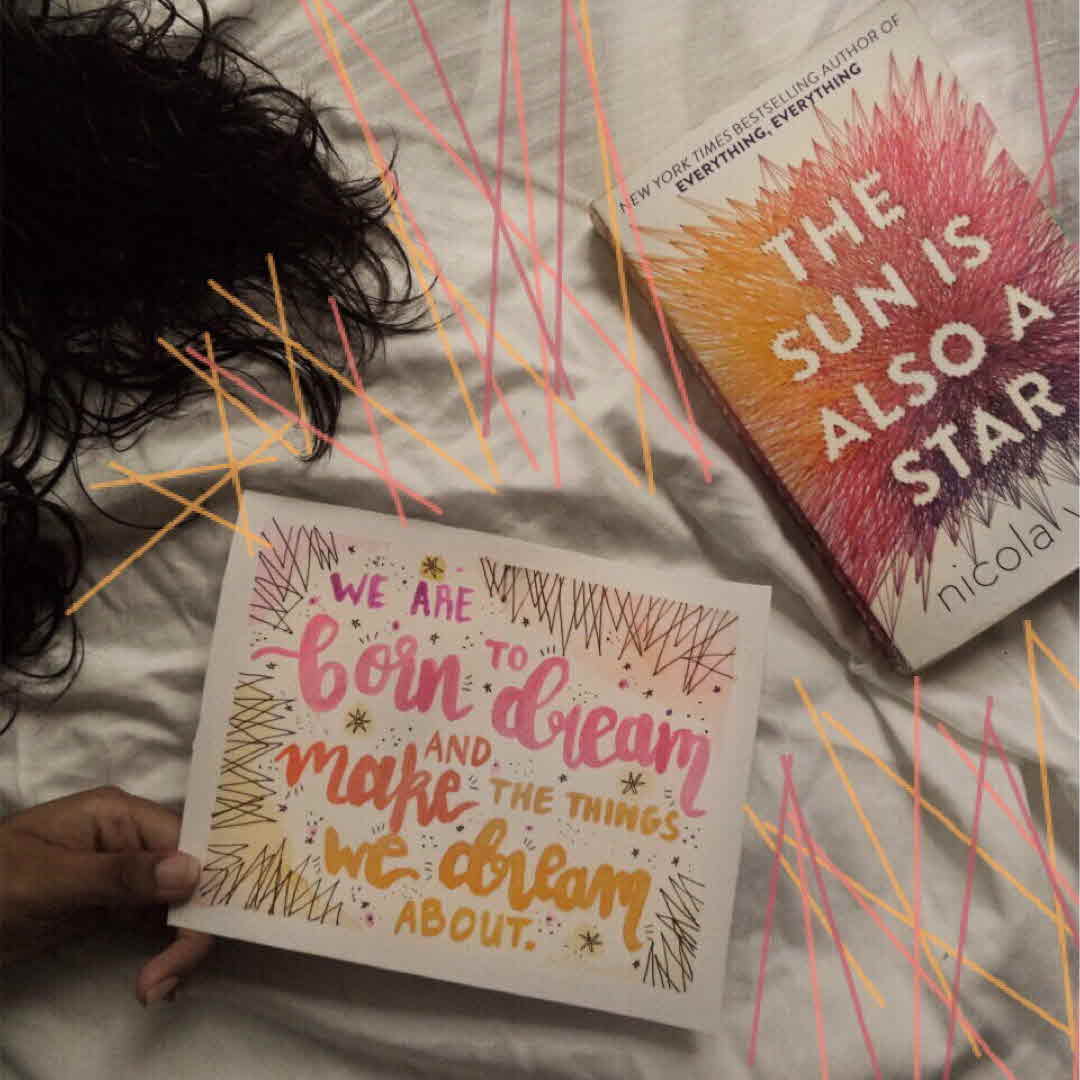 NEW YORK TIMES BESTSELLING AUTHOR OF
EVERYTHING, EVERYTHING
THE
SUN IS
ALSO A
STAR
nicola
WE ARE
born TO dream
AND
make THE THINGS
we dream
ABOUT.